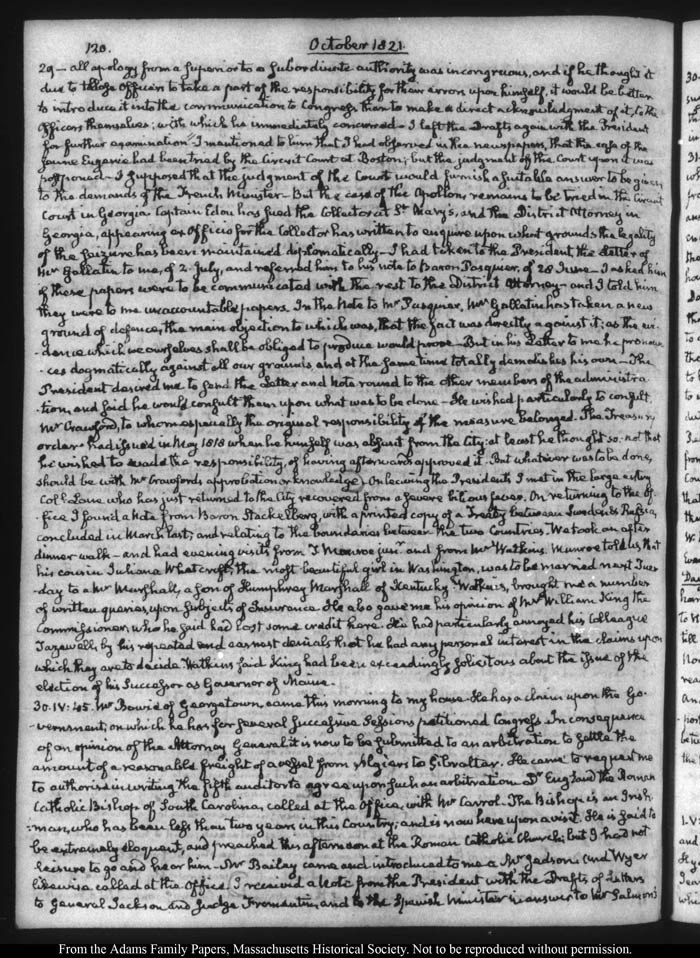 120. October 1821.
29 — all apology from a superior to a subordinate authority was incongruous, and if he thought it
due to those Officers to take a part of the responsibility for their errors upon himself, it would be better
to introduce it into the communication to Congress than to make a direct acknowledgment of it, to the
Officers themselves; with which he immediately concurred — I left the Drafts again with the President
for further examination — I mentioned to him that I had observed in the newspapers, that the case of the
Jeune Eugenie had been tried by the Circuit Court at Boston; but the judgment of the Court upon it was
postponed — I supposed that the judgment of the Court would furnish a suitable answer to be given
to the demands of the French Minister — But the case of the Apollon, remains to be tried in the Circuit
Court in Georgia. Captain Edou has sued the Collector at St. Mary's, and the District Attorney in
Georgia, appearing ex Officio for the Collector has written to enquire upon what grounds the legality
of the seizure has been maintained diplomatically — I had taken to the President, the Letter of
Mr Gallatin to me, of 2. July, and referred him to his note to Baron Pasquier, of 28 June — I asked him
if these papers were to be communicated with the rest to the District Attorney — and I told him
they were to me unaccountable papers. In the Note to Mr Pasquier, Mr Gallatin has taken a new
ground of defence, the main objection to which was, that the fact was directly against it; as the evi-
-dence which we ourselves shall be obliged to produce would prove — But in his Letter to me he pronoun-
-ces dogmatically against all our grounds and at the same time totally demolishes his own — The
President desired me to send the Letter and Note round to the other members of the administra-
-tion, and said he would consult them upon what was to be done — He wished particularly to consult
Mr Crawford, to whom especially the original responsibility of the measure belonged. The Treasury
order had issued in May 1818 when he himself was absent from the City; at least he thought so: not that
he wished to evade the responsibility, of having afterwards approved it. But whatever was to be done,
should be with Mr Crawford's approbation or knowledge. On leaving the President's I met in the large entry
Coll. Lane who has just returned to the City recovered from a severe bilious fever. On returning to the Of-
fice I found a Note from Baron Stackelberg, with a printed copy of a Treaty between Sweden & Russia,
concluded in March last; and relating to the boundaries between the two Countries. We took an after
dinner walk — and had evening visits from J. Monroe junr. and from Mr Watkins. Munroe told us that
his cousin Juliana Whatcroft, the most beautiful girl in Washington, was to be married next Tues-
-day to a Mr Marshall, a son of Humphrey Marshall of Kentucky. Watkins, brought me a number
of written queries, upon subjects of Insurance. He also gave me his opinion of Mr William King the
Commissioner, who he said had lost some credit here. He had particularly annoyed his Colleague
Tazewell, by his repeated and earnest denials that he had any personal interest in the claims upon
which they are to decide. Watkins said King had been exceedingly solicitous about the issue of the
election of his Successor as Governor of Maine.
30. IV: 45. Mr Bowie of Georgetown, came this morning to my house. He has a claim upon the Go-
-vernment, on which he has for several successive Sessions petitioned Congress. In consequence
of an opinion of the Attorney General it is now to be submitted to an arbitration to settle the
amount of a reasonable freight of a vessel from Algiers to Gibraltar. He came to request me
to authorise in writing the fifth auditor to agree upon such an arbitration. Dr England the Roman
Catholic Bishop of South Carolina, called at the Office, with Mr Carrol. The Bishop is an Irish-
-man, who has been less than two years in this Country, and is now here upon a visit. He is said to
be extremely eloquent, and preached this afternoon at the Roman Catholic Church; but I had not
leisure to go and hear him — Mr Bailey came and introduced to me a Mr Judson; and Wyer
likewise called at the Office. I received a Note from the President with the Drafts of Letters
to General Jackson and Judge Fromentin, and to the Spanish Minister in answer to Mr Salmon's
From the Adams Family Papers, Massachusetts Historical Society. Not to be reproduced without permission.